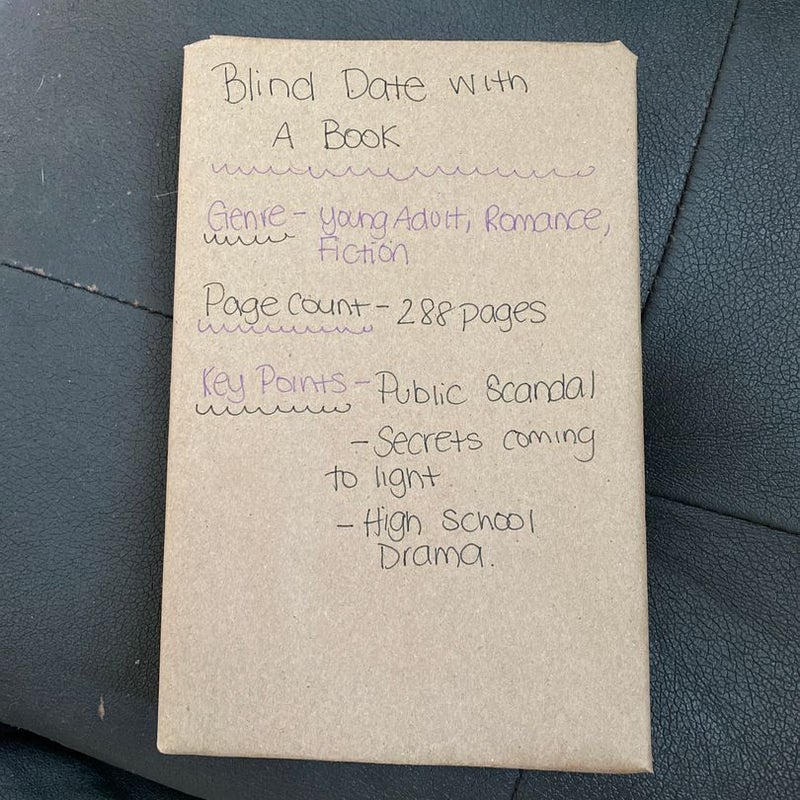 Blind Date with
A Book
Genre - Young Adult, Romance,
Fiction
Page Count - 288 pages
Key Points - Public Scandal
- Secrets coming
to light
- High School
Drama.